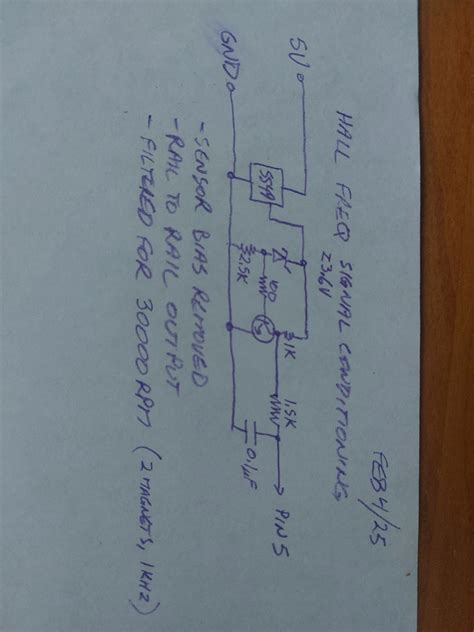 FEB 4/25
HALL FREQ SIGNAL CONDITIONING
Z3.6V
5V
1K
1.5K
PIN 5
SS49
100
2.5K
0.1µF
GND
- SENSOR BIAS REMOVED
- RAIL TO RAIL OUTPUT
- FILTERED FOR 30000 RPM (2 MAGNETS, 1KHZ)